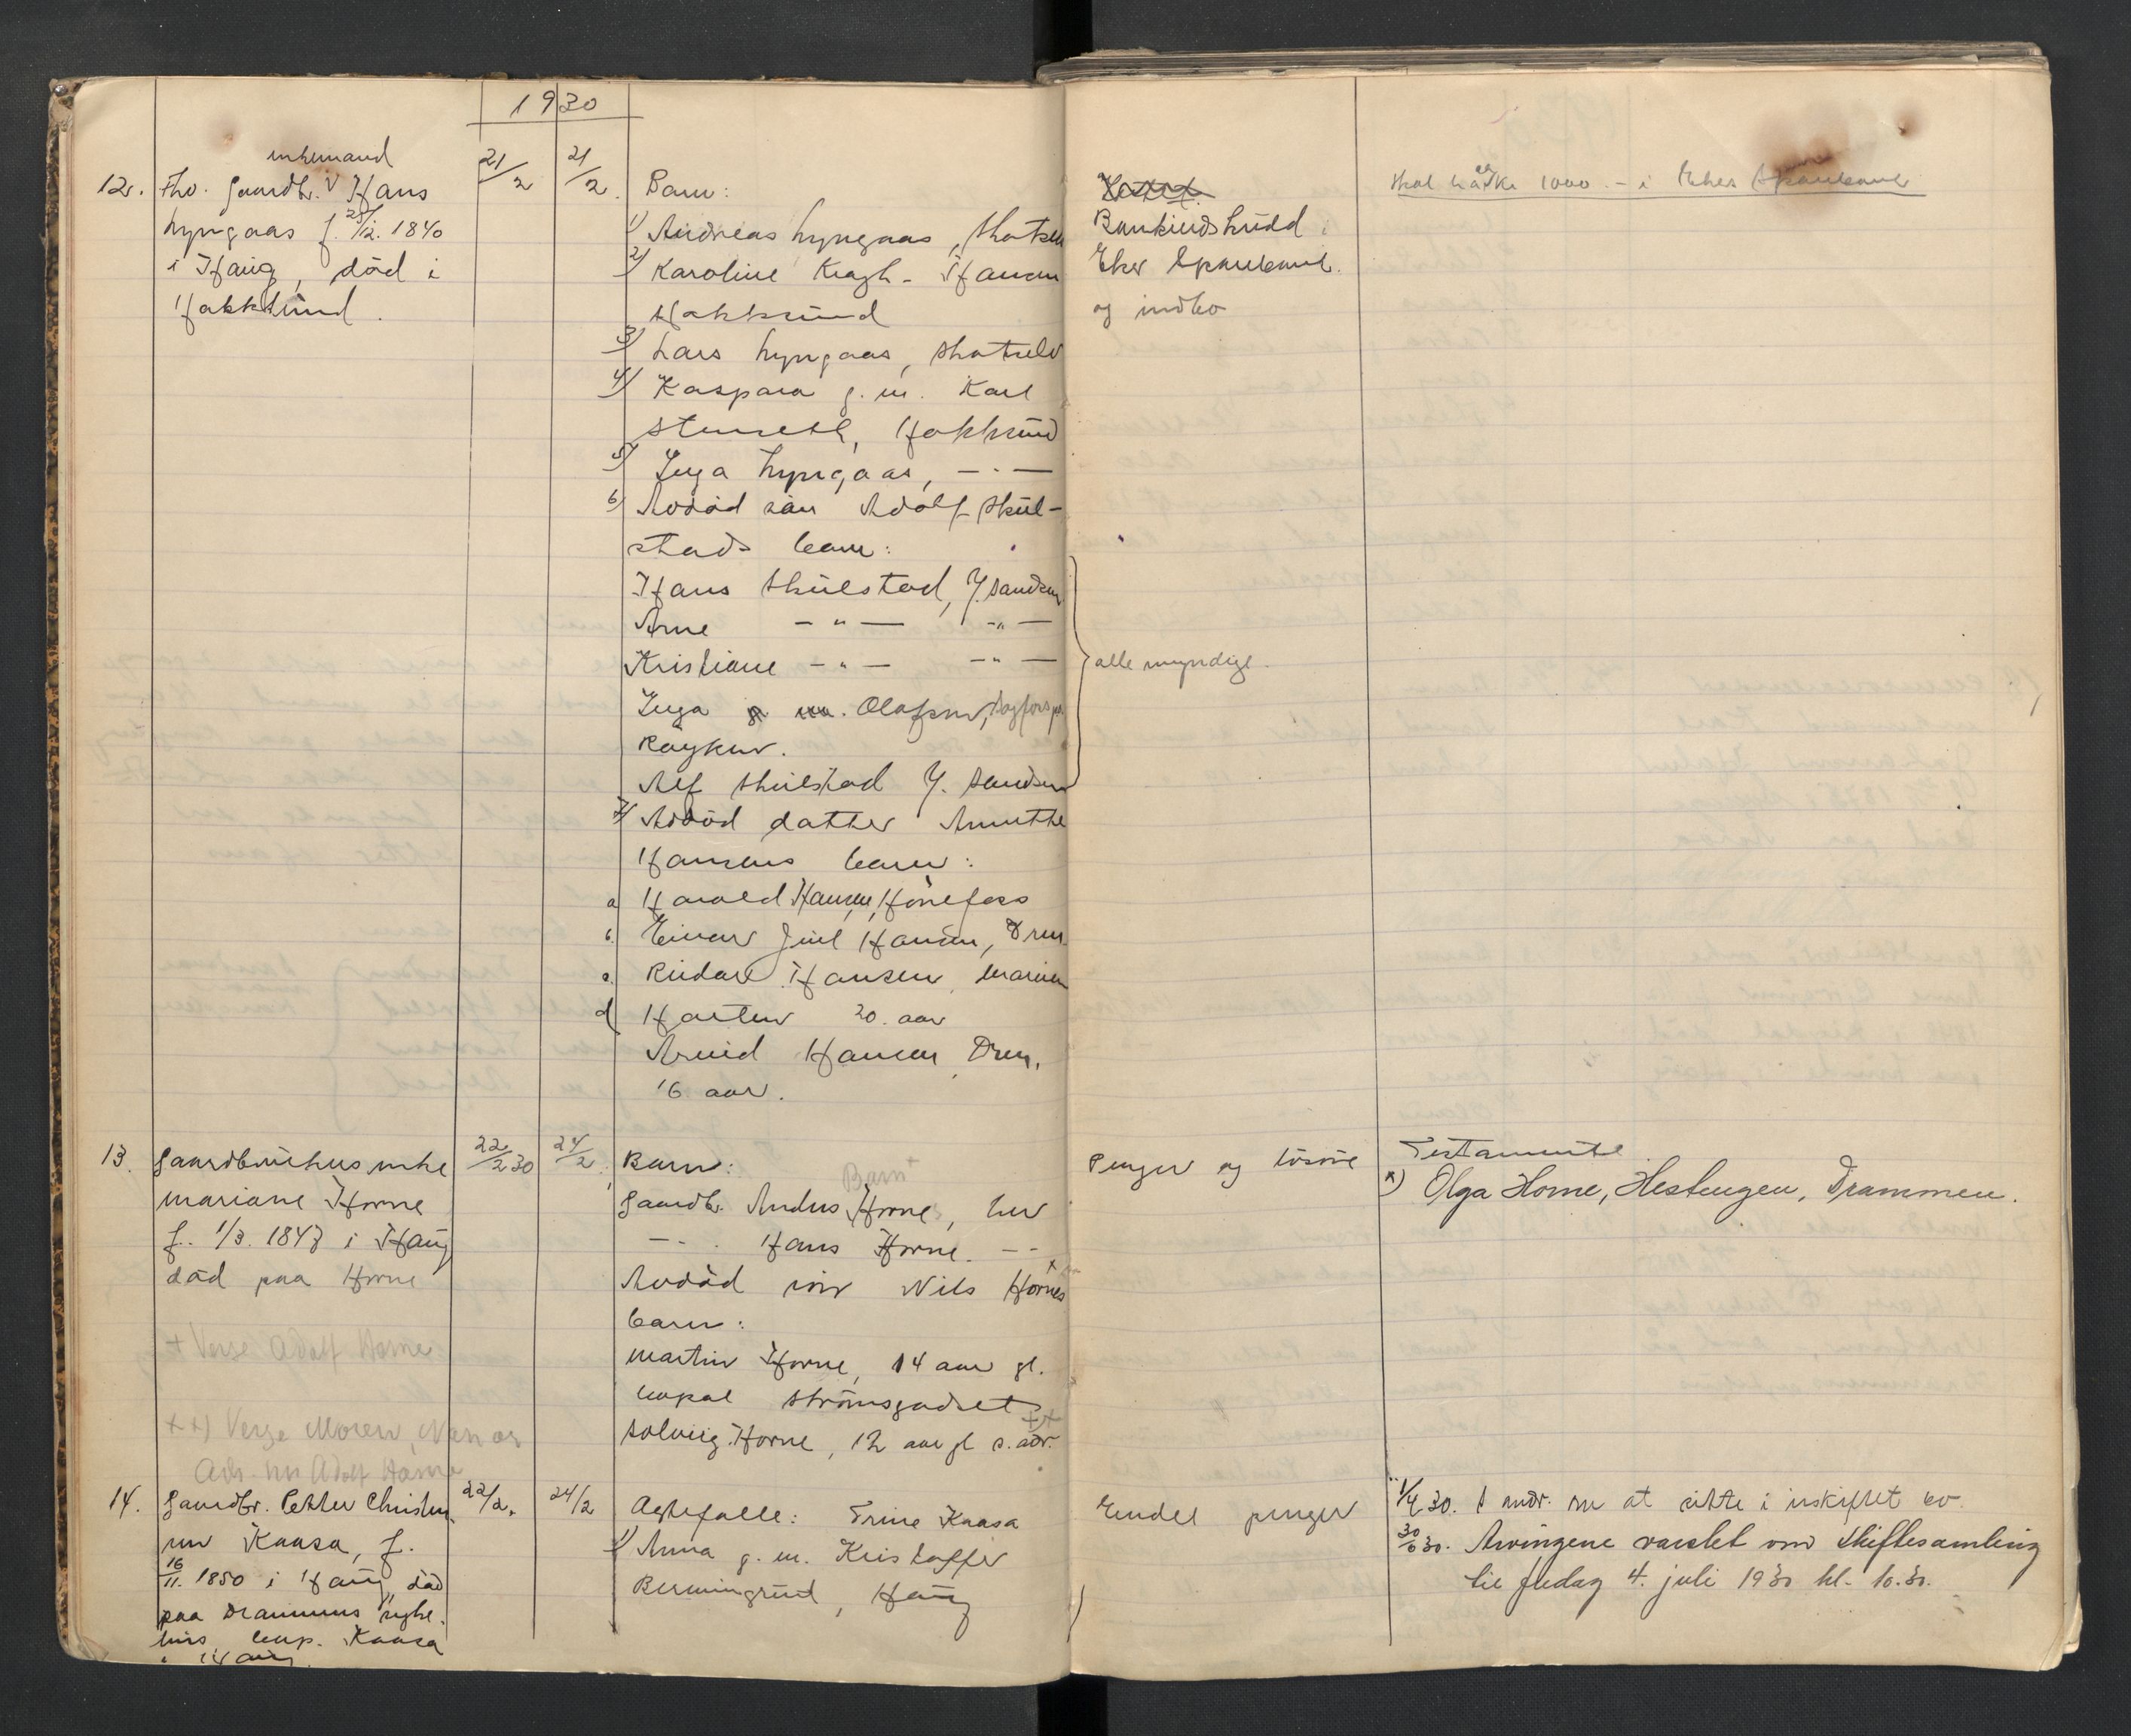 1930
enkemand
12. fhv. Gaardbr. V Hans
Lyngaas f. 25/12. 1840
i Haug, död i
Hokksund.
21/2
21/2.
Barn:
1) Andreas Lyngaas, Skotselv
2) Karoline Kragh-Hansen
Hokksund
3) Lars Lyngaas, Skotselv
4) Kaspara g. m. Karl
Stenseth, Hokksund
5) Inga Lyngaas, — · —
6) Avdöd sön Adolf Skul-
stads barn:
Hans Skulstad, Y. Sandsvær
Arne — " — — " —
Kristiane — " — — " —
Inga g. m. Olafsen,
Röyken.
Alf Skulstad Y. Sandsvær
alle myndige.
7) Avdöd datter Annethe
Hansens barn:
a Harald Hansen, Hönefoss
b. Einar Juel Hansen, Drm.
c. Reidar Hansen,
d 20. aar
Arvid Hansen, Drm.
16 aar.
Bankindskudd i
Eker Sparebank
og indbo
Skal være 1000.- i Eker Sparebank
13. Gaardbrukerenke
Mariane Horne
f. 1/3. 1843 i Haug
död paa Horne
+ Verge Adolf Horne
++) Verge Moren,
Adr. hr. Adolf Horne
22/2 30
24/2.
Barn:
Barn +
Gaardbr. Anders Horne, her
— - . Hans Horne. — -
Avdöd sön Nils Hornes
barn:
Martin Horne, 14 aar gl.
bopæl Strömsgodset
Solveig Horne, 12 aar gl s. adr.
++
Penger og lösöre
Testamente
x) Olga Horne, Hestengen, Drammen.
14. Gaardbr. Petter Christen-
sen Kaasa, f.
16/11. 1850 i Haug, död
paa Drammens syke-
hus, bop. Kaasa
i Haug.
22/2.
24/2
Aegtefælle: Trine Kaasa
1) Anna g. m. Kristoffer
Bermingrud, Haug
Endel penger
1/4 30. S andr. om at sitte i uskiftet bo.
30/6 30. Arvingene varslet om skiftesamling
til fredag 4. juli 1930 kl. 10.30.